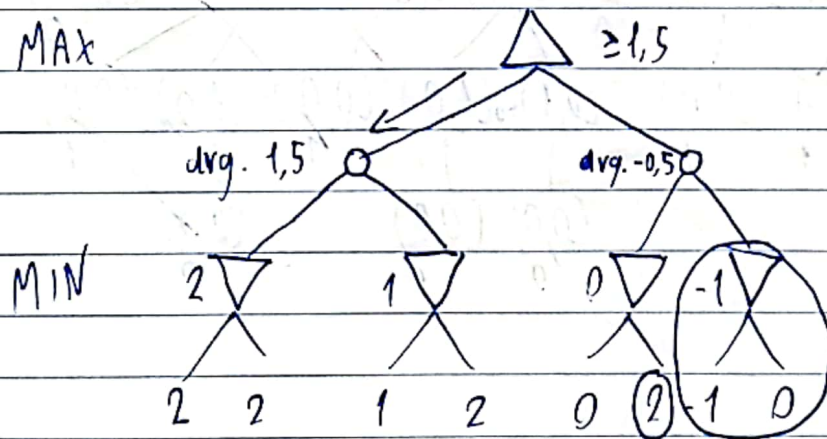 MAX ≥1,5
avg. 1,5 avg. -0,5
MIN 2 1 0 -1
2 2 1 2 0 2 -1 0